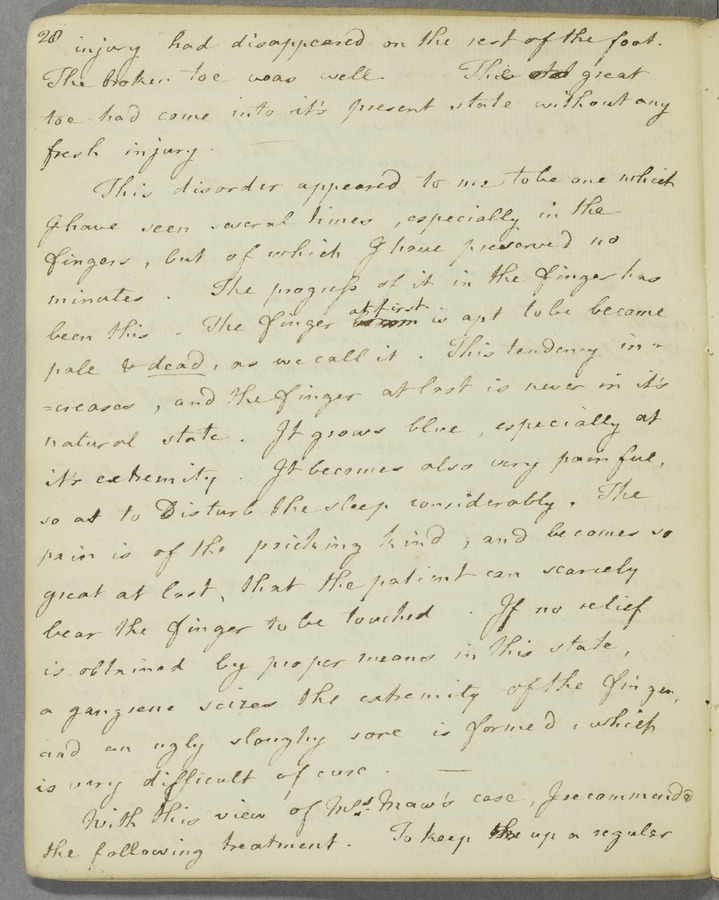 28
injury had disappeared on the rest of the foot.
The broken toe was well. This great
toe had come into it's present state without any
fresh injury. —
This disorder appeared to me to be one which
I have seen several times, especially in the
fingers, but of which I have preserved no
minutes. The progress of it in the finger has
been this. The finger at first is apt to be become
pale & dead, as we call it. This tendency in=
=creases, and the finger at last is never in it's
natural state. It grows blue, especially at
it's extremity. It becomes also very painful,
so as to Disturb the sleep considerably. The
pain is of the pricking kind; and becomes so
great at last, that the patient can scarcely
bear the finger to be touched. If no relief
is obtained by proper means in this state,
a gangrene seizes the extremity of the finger,
and an ugly sloughy sore is formed, which
is very difficult of cure. —
With this view of Mrs. Maw's case, I recommended
the following treatment. To keep up a regular